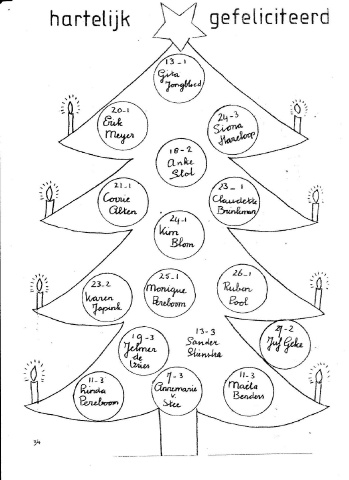 hartelijk gefeliciteerd
13-1
Gita
Jongbloed
20-1
Erik
Meyer
24-3
Siona
Hazeloop
18-2
Anke
Slot
21-1
Corrie
Alten
23-1
Claudette
Brinkman
24-1
Kim
Blom
23-2
Karen
Jopink
25-1
Monique
Pereboom
26-1
Ruben
Pool
19-3
Jelmer
de
Vries
13-3
Sander
27-2
Juf Geke
11-3
Linda
Pereboom
7-3
Annemarie
v.
Stee
11-3
Maëla
Benders
34